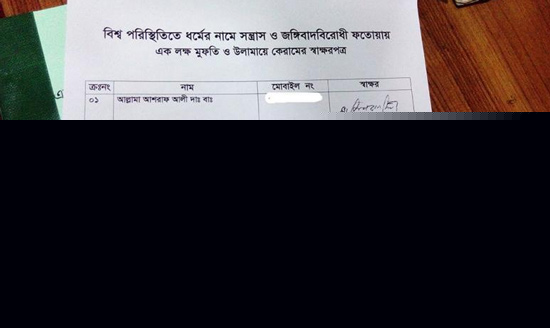 বিশ্ব পরিস্থিতিতে ধর্মের নামে সন্ত্রাস ও জঙ্গিবাদবিরোধী ফতোয়ায়
এক লক্ষ মুফতি ও উলামায়ে কেরামের স্বাক্ষরপত্র
ক্রঃনং নাম মোবাইল নং স্বাক্ষর
০১ আল্লামা আশরাফ আলী দাঃ বাঃ